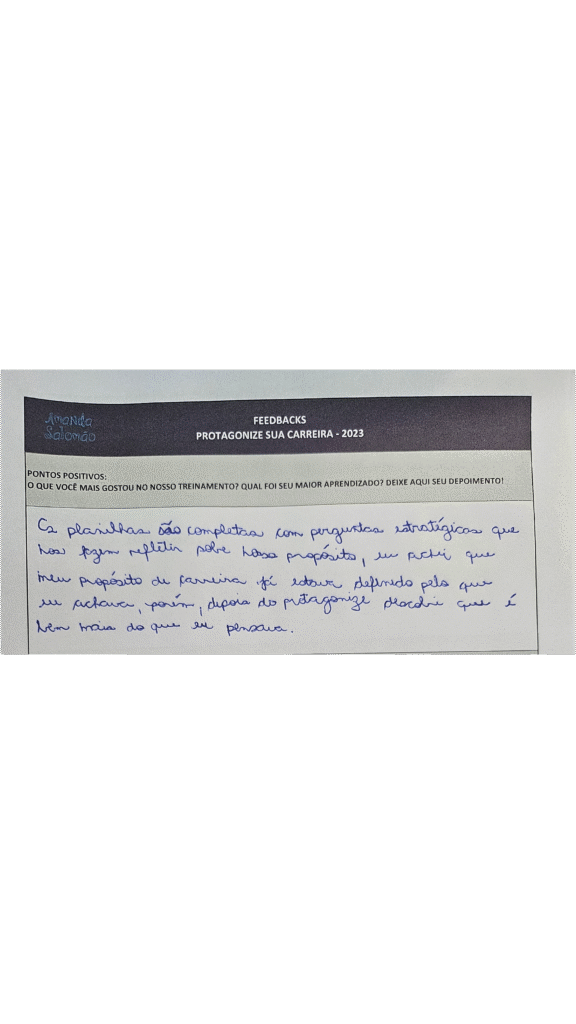 Amanda
Salomão
FEEDBACKS
PROTAGONIZE SUA CARREIRA - 2023
PONTOS POSITIVOS:
O QUE VOCÊ MAIS GOSTOU NO NOSSO TREINAMENTO? QUAL FOI SEU MAIOR APRENDIZADO? DEIXE AQUI SEU DEPOIMENTO!
As planilhas são completas com perguntas estratégicas que
nos fazem refletir sobre nosso propósito, eu achei que
meu propósito de carreira já estava definido pelo que
eu achava, porém, depois do protagonize descobri que é
bem mais do que eu pensava.